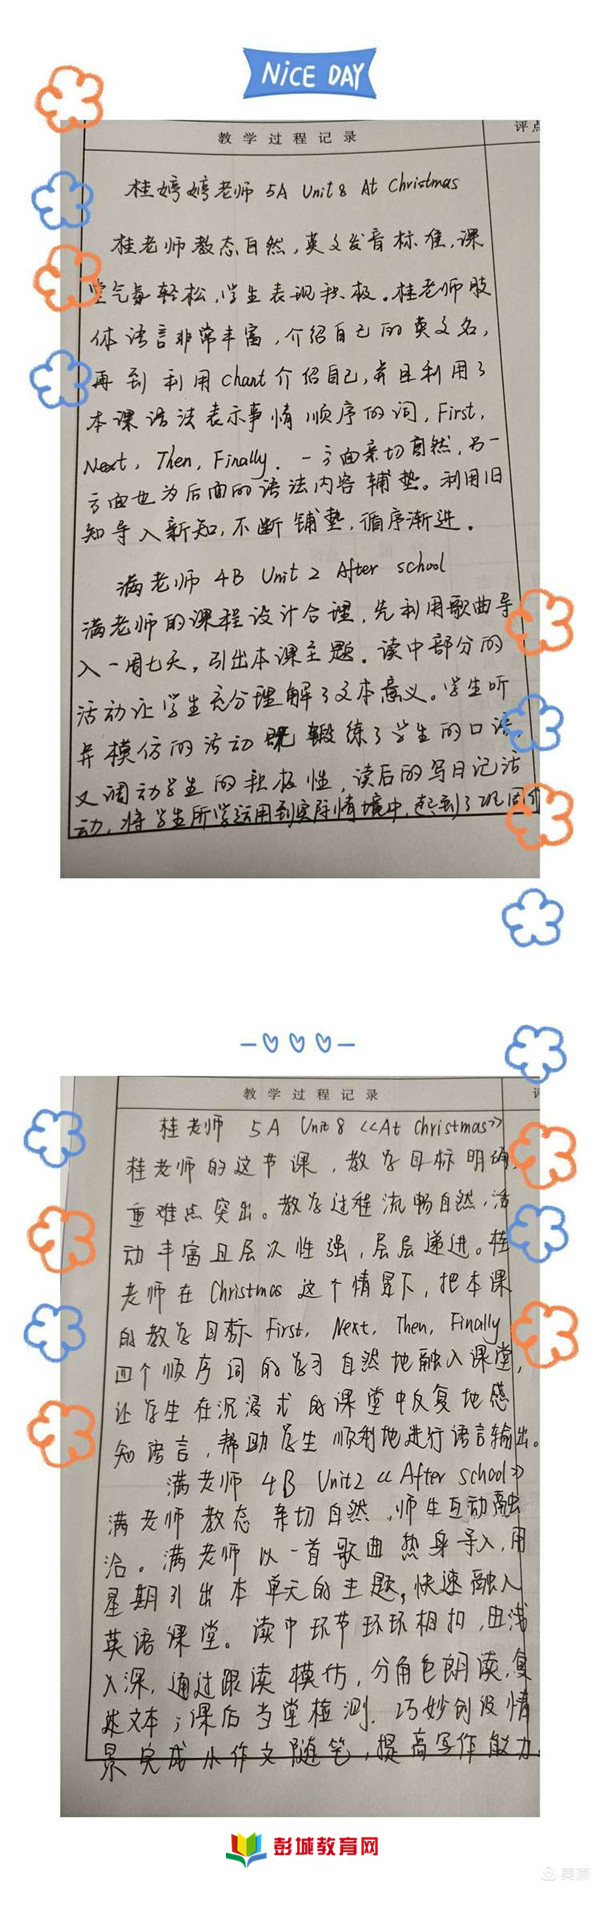 NiCE DAY
教学过程记录
评点
桂婷婷老师 5A Unit 8 At Christmas
桂老师教态自然,英文发音标准,课
堂气氛轻松,学生表现积极。桂老师肢
体语言非常丰富,介绍自己的英文名,
再到利用chant介绍自己,并且利用了
本课语法表示事情顺序的词,First,
Next, Then, Finally. 一方面亲切自然,另一
方面也为后面的语法内容铺垫。利用旧
知导入新知,不断铺垫,循序渐进。
满老师 4B Unit 2 After school
满老师的课程设计合理,先利用歌曲导
入一周七天,引出本课主题。读中部分的
活动让学生充分理解了文本意义。学生听
并模仿的活动既锻练了学生的口语
又调动学生的积极性,读后的写日记活
动,将学生所学运用到实际情境中,起到了巩固
教学过程记录
桂老师 5A Unit 8 《At Christmas》
桂老师的这节课,教学目标明确,
重难点突出。教学过程流畅自然,活
动丰富且层次性强,层层递进。桂
老师在Christmas这个情景下,把本课
的教学目标First, Next, Then, Finally
四个顺序词的学习自然地融入课堂,
让学生在沉浸式的课堂中反复地感
知语言,帮助学生顺利地进行语言输出。
满老师 4B Unit 2 《After school》
满老师教态亲切自然,师生互动融
洽。满老师以一首歌曲热身导入,用
星期引出本单元的主题,快速融入
英语课堂。读中环节环环相扣,由浅
入深,通过跟读模仿,分角色朗读,复
述文本;课后当堂检测,巧妙创设情
景完成小作文随笔,提高写作能力.
彭城教育网
美篇